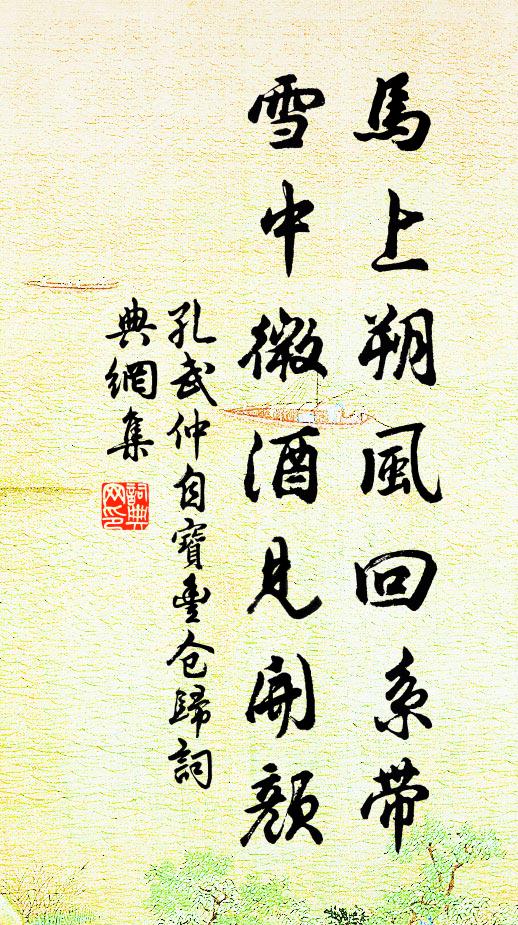 馬上朔風回系帶
雪中微酒見開顏
孔武仲自寶豐仓歸詞
典網集
詞典
网印